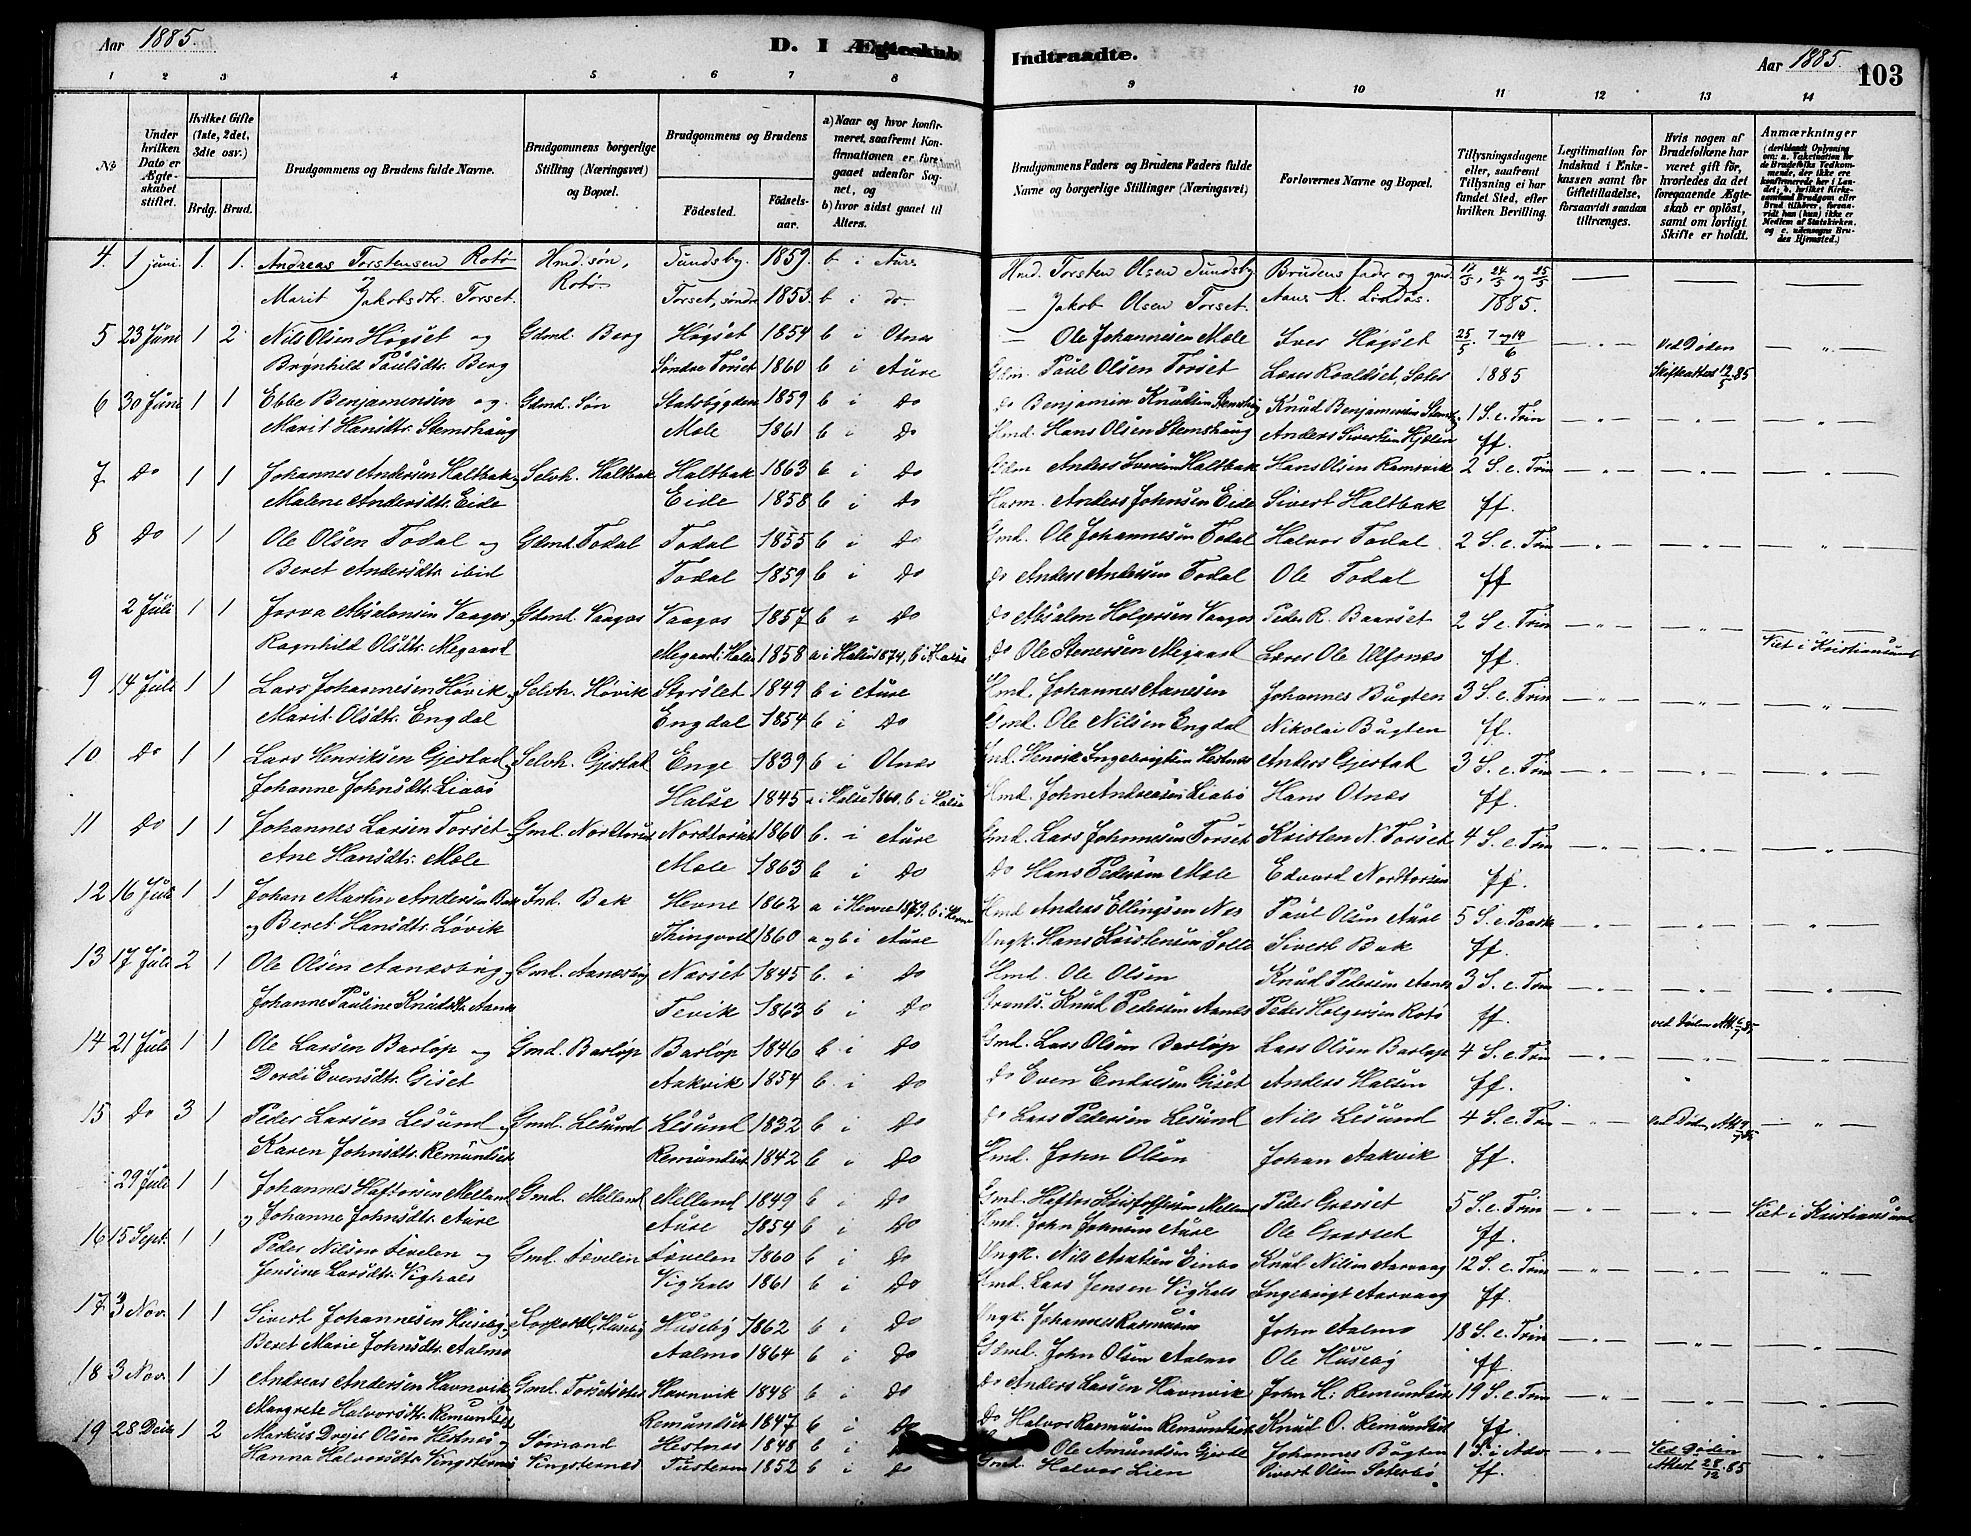 Aar 1885.
D. I Ægteskab Indtraadte.
Aar 1885. 103
1 2 3 4 5 6 7 8 9 10 11 12 13 14
No
Under hvilken Dato er Ægteskabet stiftet.
Hvilket Gifte (1ste, 2det, 3die osv.)
Brdg. Brud.
Brudgommens og Brudens fulde Navne.
Brudgommens borgerlige Stilling (Næringsvei) og Bopæl.
Brudgommens og Brudens
Fødested. Fødselsaar.
a) Naar og hvor konfirmeret, saafremt Konfirmationen er foregaaet udenfor Sognet, og
b) hvor sidst gaaet til Alters.
Brudgommens Faders og Brudens Faders fulde Navne og borgerlige Stillinger (Næringsvei)
Forlovernes Navne og Bopæl.
Tillysningsdagene eller, saafremt Tillysning ei har fundet Sted, efter hvilken Bevilling.
Legitimation for Indskud i Enkekassen samt for Giftetilladelse, forsaavidt saadan tiltrænges.
Hvis nogen af Brudefolkene har været gift før, hvorledes da det foregaaende Ægteskab er opløst, samt om lovligt Skifte er holdt.
Anmærkninger (deriblandt Oplysning om: a. Vakcination for de Brudefolks Vedkommende, der ikke ere konfirmerede her i Landet; b. hvilket Kirkesamfund Brudgom eller Brud tilhører, forsaavidt han (hun) ikke er Medlem af Statskirken, og c. udensogns Brudes Hjemsted.)
4. 1 juni. 1. 1. Andreas Torstensen Rotø Hmd. søn, Sundsby. 1859. b i Aure Hmd. Torsten Olsen Sundsby Brudens fader og gmd. 17/5, 24/5 og 25/5
Marit Jakobsdtr. Torset. Rotø Torset, søndre 1853. b i do — Jakob Olsen Torset. Aans K. Lindås. 1885.
5 23 Juni 1 2 Nils Olsen Høgset og Gdmd. Berg Høgset 1854 b i Otnes — Ole Johannesen Mole Iver Høgset 25/5. 7 og 14/6 Ved Døden
Brynhild Paulsdtr. Berg Søndre Torset 1860 b i Aure Gdm. Paul Olsen Torset Lærer Roaldset, Sæter 1885 Skifteattest 12/5 85
6 30 Juni 1 1 Ebbe Benjamensen og Gdmd. Søn Stadsbygden 1859 b i Do Do Benjamin Knudsen Stemshaug Knud Benjaminsen Stemsh. 1 S. e. Trin
Marit Hansdtr. Stemshaug Mole 1861 b i Do Hmd. Hans Olsen Stemshaug Anders Sivertsen Hjelen ff.
7 Do 1 1 Johannes Andersen Haltbak, Selvh. Haltbak Haltbak 1863 b i Do Anders Iversen Haltbak Hans Olsen Ramsvik 2 S. e. Trin
Malene Andersdtr. Eide Eide 1858 b i Do Anders Johnsen Eide Sivert Haltbak ff.
8 Do 1 1 Ole Olsen Todal og Gdmd. Todal Todal 1855 b i Do Gmd. Ole Johannesen Todal Halvor Todal 2 S. e. Trin
Beret Andersdtr. ibid Todal 1859 b i Do Do Anders Andersen Todal Ole Todal ff
2 Juli 1 1 Absalonsen Vaagos, Gdmd. Vaagos Vaagos 1857 b i Do Do Absalon Holgersen Vaagos Peder R. Baarset 2 S e. Trin
Ragnhild Olsdtr. Megaard Megaard, Halse 1858 a i Halse 1874, b i Halse Do Ole Stenersen Megaard Lærer Ole Ulfsnes ff. Viet i Kristiansund
9 14 Juli 1 1 Lars Johannesen Høvik, Selvh. Høvik Storslet 1849 b i Aure Hmd. Johannes Aanesen Johannes Bugten 3 S. e. Trin
Marit Olsdtr. Engdal Engdal 1854 b i Do Gmd. Ole Nilsen Engdal Nikolai Bugten ff.
10 Do 1 1 Lars Henriksen Gjestad, Selvh. Gjestad Enge 1839 b i Otnes Ind. Henrik Ingebrigtsen Hestnes Anders Gjestad 3 S. e. Trin
Johanne Johnsdtr. Liabø Halse 1845 a i Halse 1860, b i Halse Hmd. John Andreasen Liabø Hans Otnes ff.
11 Do 1 1 Johannes Larsen Torset Gmd. Nordtorset Nordtorset 1860 b. i Aure Gmd. Lars Johannesen Torset Kristen N. Torset 4 S. e. Trin
Ane Hansdtr. Mole Mole 1863 b i Do Do Hans Pedersen Mole Edvard Nordtorset ff.
12 16 Juli 1 1 Johan Martin Andersen Bak Ind. Bak Hevne 1862 a i Hevne 1879, b i Hevne Hmd Anders Ellingsen Nes Paul Olsen Aure 5 S. e. Paask
og Beret Hansdtr. Løvik Thingvoll 1860 a og b i Aure Ungk. Hans Kristensen Solli Sivert Bak ff.
13 17 Juli 2 1 Ole Olsen Aanesbug, Gmd. Aanesbug Norset 1845 b. i Do Hmd. Ole Olsen Knud Pedersen Aanes 3 S. e. Trin
Johanne Pauline Knudsdtr. Aanes Tevik 1863 b i Do Knud Pedersen Aanes Peder Holgersen Rotø ff. ved Døden Att. 6/7 85
14 21 Juli 1 1 Ole Larsen Barløp og Gmd. Barløp Barløp 1846 b i Do Gmd. Lars Olsen Barløp Lars Olsen Barløp 4 S. e. Trin
Dordi Evensdtr. Giset Aakvik 1854 b i Do Do Even Endresen Giset Anders Halsen ff.
15 Do 3 1 Peder Larsen Lesund, Gmd. Lesund Lesund 1832 b i Do Do Lars Pedersen Lesund Nils Lesund 4 S. e. Trin ved Døden, Att.
Karen Johnsdtr. Remundset Remundset 1842 b i Do Hmd. John Olsen Johan Aakvik ff.
29 Juli 1 1 Johannes Haftorsen Melland Gmd. Melland Melland 1849 b i Do Gmd. Haftor Kristoffersen Melland Peder Græset 5 S. e. Trin Viet i Kristiansund
og Johanne Johnsdtr. Aure Aure 1854 b i Do Gmd. John Johnsen Aure Ole Græset ff.
16 15 Sept. 1 1 Peder Nilsen Tevelen og Gmd. Tevelen Tevelen 1860 b i Do Ungk. Nils Knud Nilsen Aarvaag 12 S. e. Trin
Jensine Larsdtr. Vighals Vighals 1861 b i Do Gmd. Lars Jensen Vighals Ingebrigt Aarvaag ff.
17 3 Nov. 1 1 Sivert Johannesen Husebø, Korporal, Husebø Husebø 1862 b i Do Ungk. Johannes Rasmusen John Aalmo 18 S. e. Trin
Beret Marie Johnsdtr. Aalmo Aalmo 1864 b i Do Gdmd. John Olsen Aalmo Ole Husebø ff.
18 3 Nov. 1 1 Andreas Andersen Havnvik, Gmd. Torsetsæter Havnvik 1848 b i Do Do Anders Larsen Havnvik John H. Remundset 19 S. e. Trin
Margrete Halvorsdtr. Remundset Remundset 1847 b i Do Do Halvor Rasmusen Remundset Knud O. Remundset ff.
19 28 Decb 1 2 Markus Drejet Olsen Hestnes og Sømand Hestnes 1848 b i Do Ole Amundsen Gjerde Johannes Bugten 1 S. i Adv. Ved Døden
Hanna Halvorsdtr. Vingsternes Vingsternes Tusteren 1852 b i Do Gmd. Halvor Lien Sivert Olsen Sæterbø ff. Attest 28/12 85